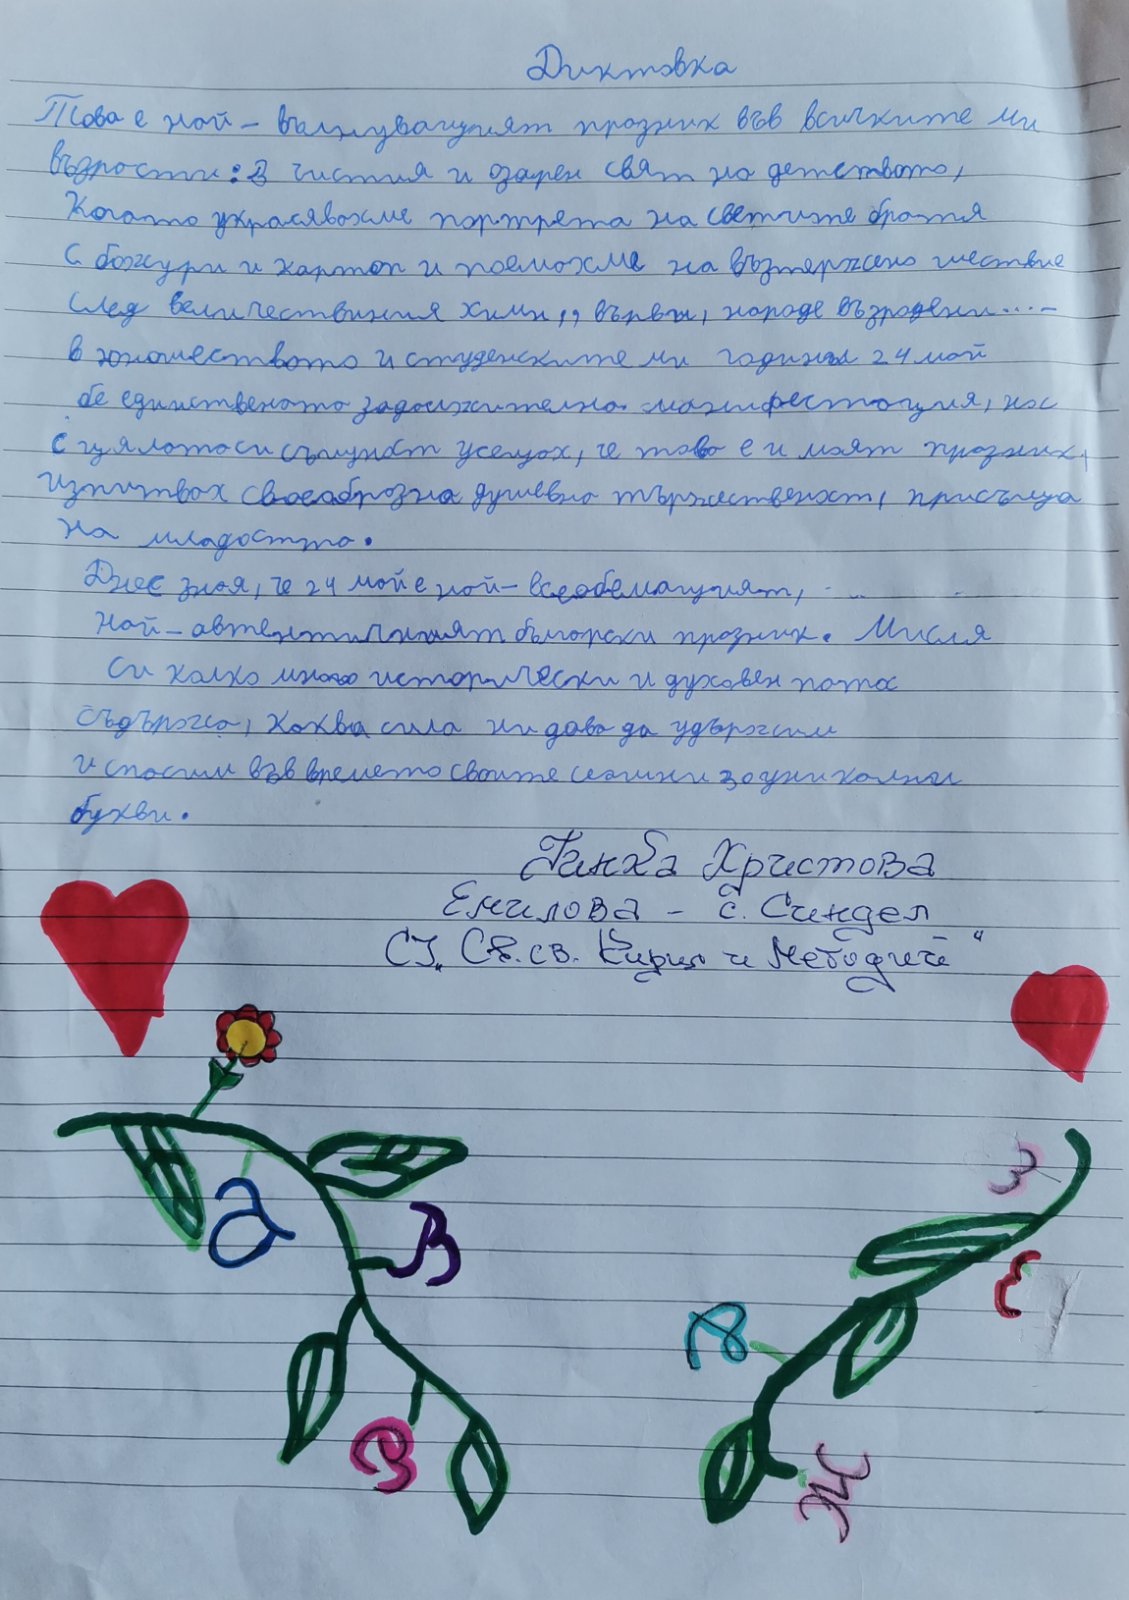 Диктовка
Това е най-вълнуващият празник във всичките ми
възрасти: В чистия и озарен свят на детството,
Когато украсявахме портрета на светите братя
с божури и картон и поемахме на възтържено шествие
след величествиния химн,, върви, народе възродени....-
в юношеството и студенските ми години 24 май
бе единствената задължителна манифестация, на
с цялотаси същност усещах, че това е и моят празник,
изпитвах своеобразна душевна тържественост, присъща
на младостта.
Днес зная, че 24 май е най-всеобемащият,
най-автентичният български празник. Мисля
си колко много исторически и духовен патос
съдържа, каква сила ни дава да удържим
и спасим във времето своите си уникални
букви.
Гинка Христова
Емилова - с. Синдел
СУ„ Св. св. Кирил и Методий"
а
В
В
З
Е
Д
Ж